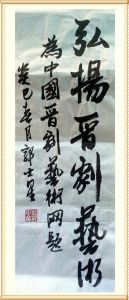 弘揚晋劇藝術
為中國晋劇藝術网題
癸巳春月郭士星